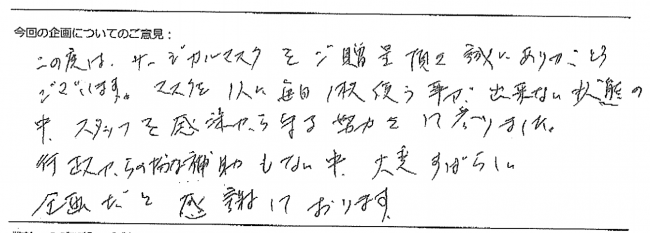 今回の企画についてのご意見：
この度は、サージカルマスクをご贈呈頂き誠にありがとう
ございます。マスクを1人に毎日1枚使う事が出来ない状態の
中、スタッフを感染から守る努力をして参りました。
行政からの補助もない中、大変すばらしい
企画だと感謝しております。